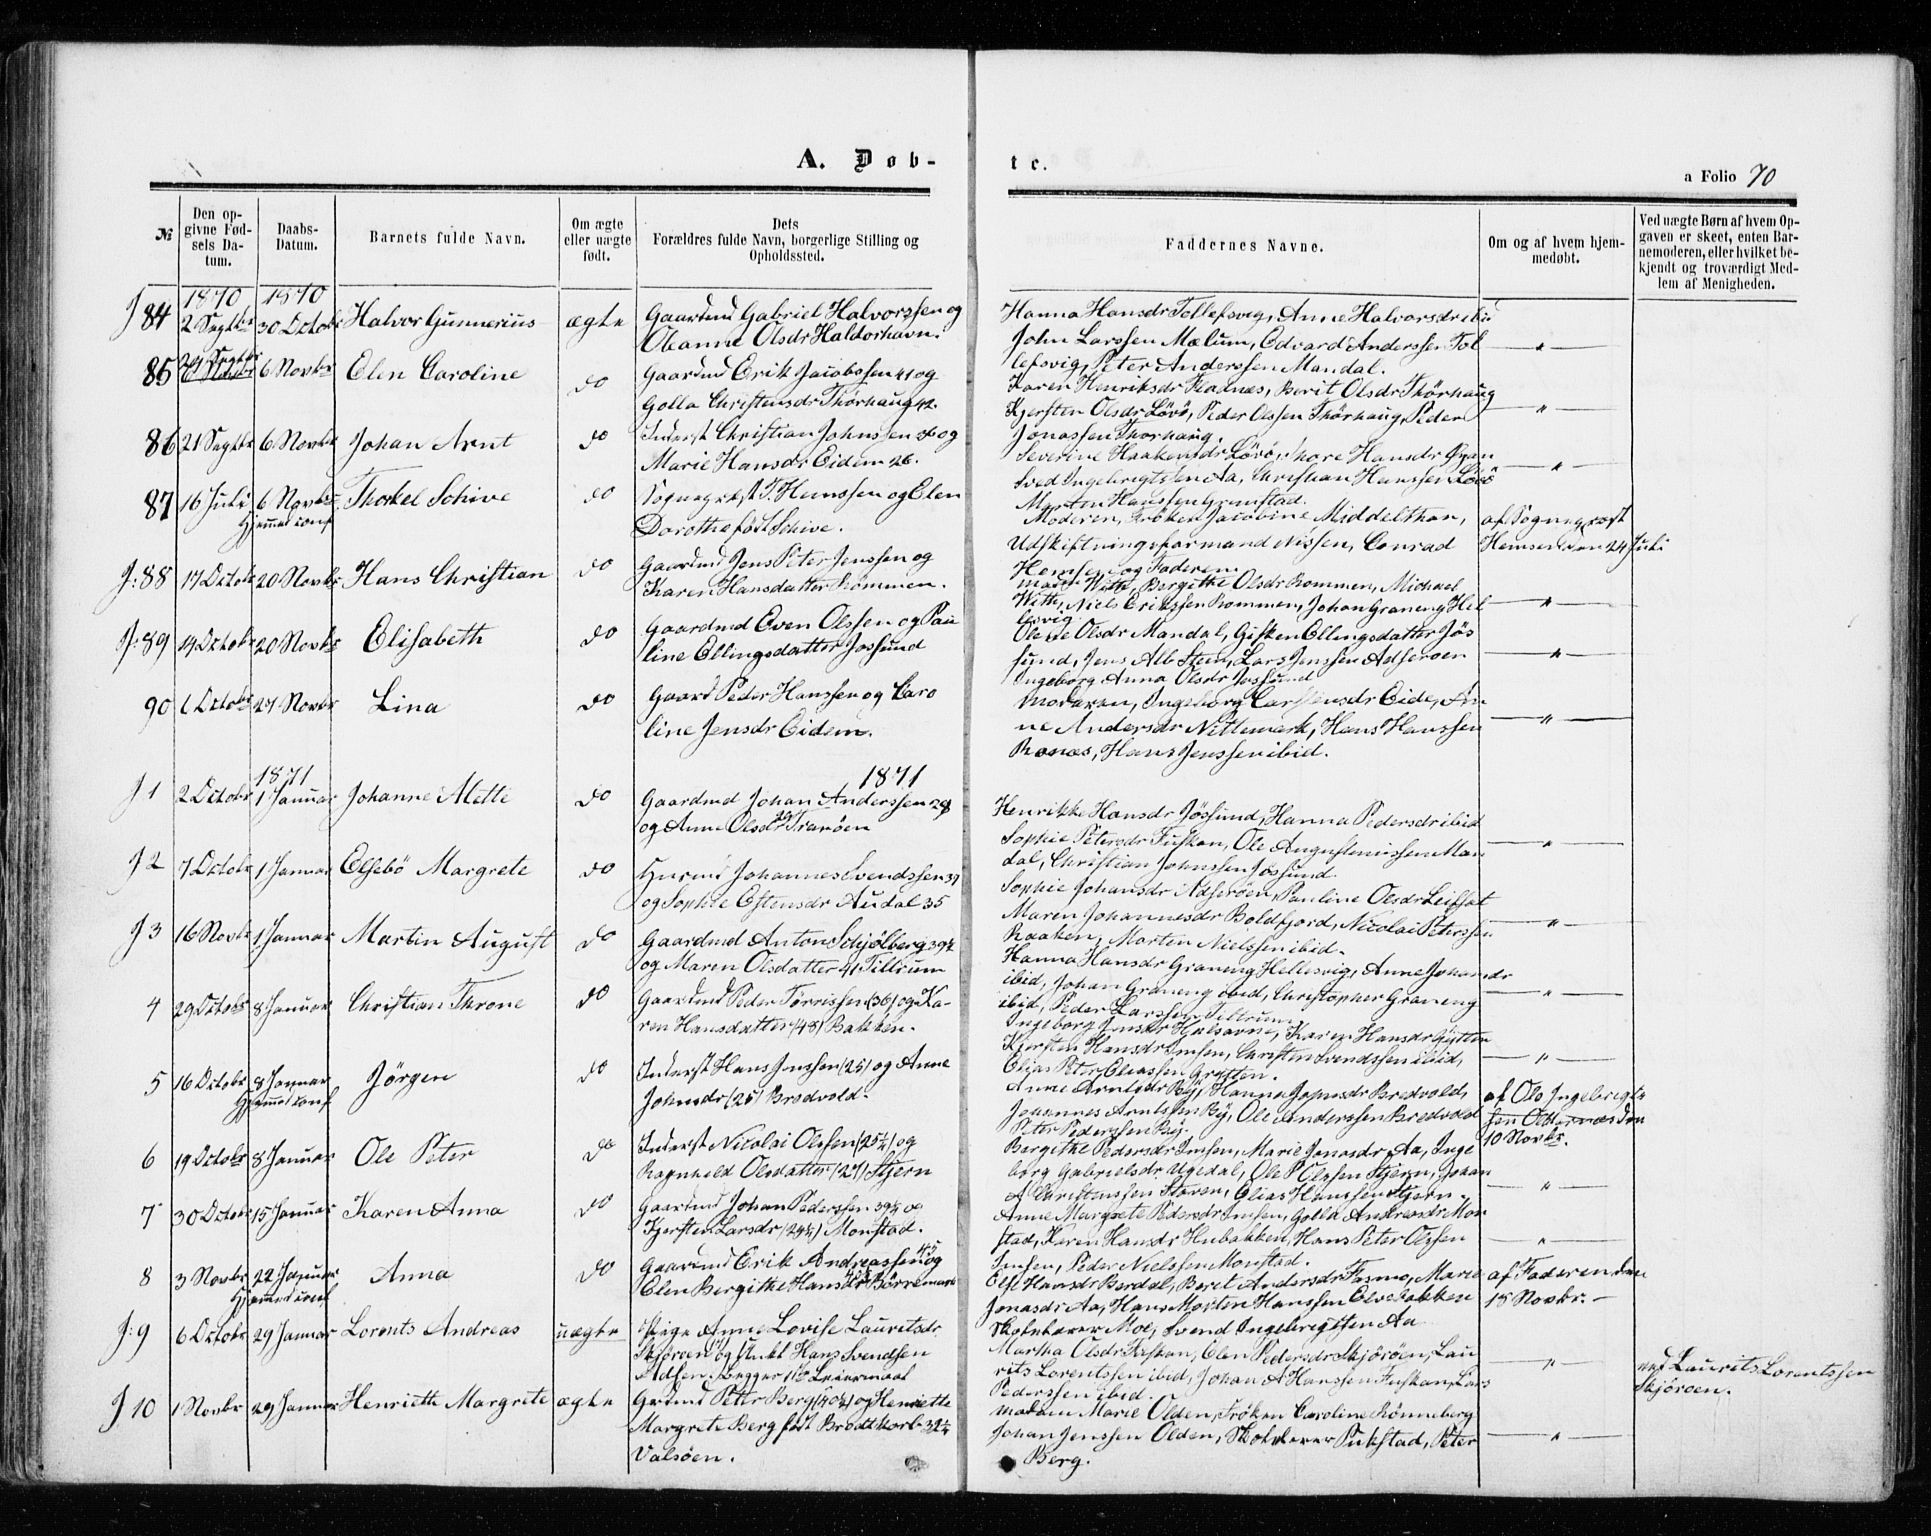 A. Døb-
te.
a Folio 70
№
Den op-
givne Fød-
sels Da-
tum.
Daabs-
Datum.
Barnets fulde Navn.
Om ægte
eller uægte
født.
Dets
Forældres fulde Navn, borgerlige Stilling og
Opholdssted.
Faddernes Navne.
Om og af hvem hjem-
medøbt.
Ved uægte Børn af hvem Op-
gaven er skeet, enten Bar-
nemoderen, eller hvilket be-
kjendt og troværdigt Med-
lem af Menigheden.
1870 1870
J 84 2 Septbr 30 Octobr Halvor Gunnerius ægte Gaardmd Gabriel Halvorssen og
Oleanne Olsdr Haldorhavn.
Hanna Hansdr Tollefsvig, Anne Halvorsdr ibid
John Larssen Mælum, Edvard Anderssen Tol
lefsvig, Peter Anderssen Mandal.
85 6 Novbr Elen Caroline do Gaardmd Erik Jacobssen 41 og
Golla Christensdr Thørhaug 42.
Karen Henriksdr Ranes, Berit Olsdr Thørhaug
Kjersten Olsdr Løvø, Peder Olssen Thørhaug, Peder
Jonassen Thorhaug.
86 21 Septbr 6 Novbr Johan Arnt do Inderst Christian Johnssen 36 og
Marie Hansdr Eidem 26.
Severine Haakensdr Løvø, Thore Hansdr
Sved Ingebrigtsen Aa, Christian Hanssen Løvø
Morten Hanssen Grønstad.
87 16 Juli 6 Novbr Thorkel Schive do Sogneprest T. Hemssen og Elen
Hjemmed conf
Dorothe født Schive.
Moderen, Frøken Jacobine Middelthon,
Udskiftningsformand Nissen, Conrad
Hemsen og Faderen
af Sogneprest
Hemsen den 24 Juli
J: 88 17 Octobr 20 Novbr Hans Christian do Gaardmd Jens Peter Jenssen og
Karen Hansdatter Rømmen.
Witth, Bergithe Olsdr Rommen, Michael
Witth, Niels Erikssen Rommen, Johan Graneng Hel
lesvig.
J: 89 14 Octobr 20 Novbr Elisabeth do Gaardmd Even Olssen og Pau
line Ellingsdatter Jøssund
Olene Olsdr Mandal, Gisken Ellingsdatter Jøs
sund, Jens Alb Steen, Lars Jenssen Adserøen
Ingeborg Anna Olsdr Jøssund
90 6 Octobr 27 Novbr Lina do Gaard Peder Hanssen og Caro
line Jensdr Eidem.
Moderen, Ingeborg Carstensdr Eide, An
ne Andersdr Nettemark, Hans Hanssen
Ranæs, Hans Jenssen ibid.
1871 1871
J 1 2 Octobr 1 Januar Johanne Mette do Gaardmd Johan Anderssen 28
og Anne Olsdr Tranøen
Henrikke Hansdr Jøssund, Hanna Pedersdr ibid
Sophie Petersdr Fuskan, Ole Augustinussen Man
dal, Christian Johnssen Jøssund
J 2 7 Octobr 1 Januar Elsebø Margrete do Husmd Johannes Svendssen 37
og Sophie Estensdr Audal 35
Sophie Johansdr Adserøen, Pauline Olsdr Leifsæt
Maren Johannesdr Boldfjord, Nicolai Peterssen
Raaken, Morten Nielssen ibid.
J 3 16 Novbr 1 Januar Martin August do Gaardmd Anton Schjølberg 39½
og Maren Olsdatter 41 Tiltrum
Hanna Hansdr Graneng Hellesvig, Anne Johansdr
ibid, Johan Graneng ibid, Christopher Graneng
ibid, Peder Larssen Teltrum.
4 29 Octobr 8 Januar Christian Throne do Gaardmd Peder Tørrissen (36) og Ka-
ren Hansdatter (48) Bakken.
Ingeborg Jensdr Halsaune, Karen Hansdr Gytten
Kjersten Hansdr Imsen, Christen Svendssen ibid,
Elias Peter Eliassen Grytten.
5 16 Octobr 8 Januar Jørgen do Inderst Hans Jenssen (25) og Anne
Hjemmed conf
Johnsdr (25) Bredvold.
Anne Arntsdr By, Hanna Johnsdr Bredvold,
Johannes Arntssen By, Ole Anderssen Bredvold
Peter Pederssen By.
af Ole Ingebrigt
sen den
10 Novbr.
6 19 Octobr 8 Januar Ole Peter do Inderst Nicolai Olssen (25½) og
Ragnhild Olsdatter (27) Stjern
Bergithe Pedersdr Imsen, Marie Jonasdr Aa, Inge
borg Gabrielsdr Ugedal, Ole P Olssen Stjern, Johan
A Christenssen Staven, Elias Hanssen Stjern.
7 30 Octobr 15 Januar Karen Anna do Gaardmd Johan Pederssen 39½ og
Kjersten Larsdr (24½) Monstad.
Anne Margrete Pedersdr Imsen, Golla Andreasdr Mon
stad, Karen Hansdr Hubakken, Hans Peter Olssen
Imsen, Peder Nielssen Monstad.
8 3 Novbr 22 Januar Anna do Gaardmd Erik Andreassen 45 og
Hjemmed conf
Elen Bergithe Hansdr Børremark
Else Hansdr Berdal, Beret Andersdr Fasmo, Marie
Jonasdr Aa, Hans Morten Hanssen Elvebakken
Skolelærer Moe, Svend Ingebrigtsen Aa
af Faderen den
18 Novbr.
J: 9 6 Octobr 29 Januar Lorents Andreas uægte Pige Anne Lovise Lauritsdr
Skjøröen og Unkl Hans Svendsen
Adsen. begges 1ste Leiermaal
Martha Olsdr Fuskan, Elen Pedersdr Skjørøen, Lau
rits Lorentssen ibid, Johan A Hanssen Fuskan, Lars
Pederssen ibid.
ved Laurits Lorentssen
Skjøroen.
J 10 1 Novbr 29 Januar Henriette Margrete ægte Grdmd Peter Berg (40¾) og Henriette
Margrete Berg født Brodtkorb 32½
Valsøen.
Madam Marie Olden, Frøken Caroline Rønneberg
Johan Jenssen Olden, Skolelærer Pukstad, Peter
Berg.